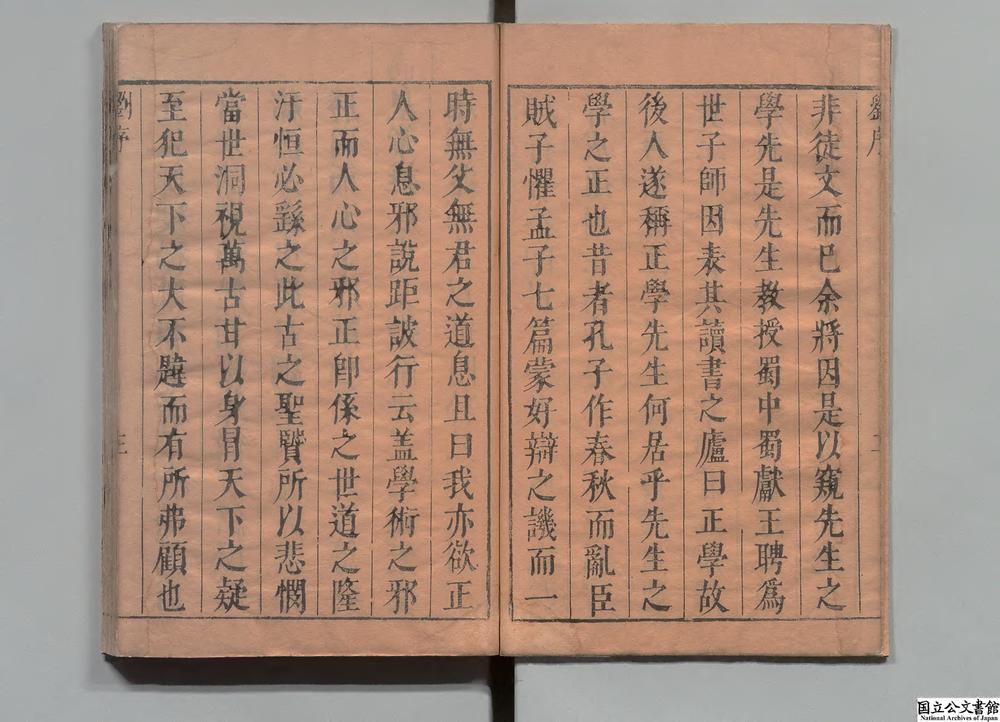 劉序
非徒文而已余將因是以窺先生之
學先是先生教授蜀中蜀獻王聘爲
世子師因表其讀書之廬曰正學故
後人遂稱正學先生何居乎先生之
學之正也昔者孔子作春秋而亂臣
賊子懼孟子七篇蒙好辯之譏而一
時無父無君之道息且曰我亦欲正
人心息邪說距詖行云盖學術之邪
正而人心之邪正卽係之世道之隆
汙恒必繇之此古之聖賢所以悲憫
當世洞視萬古甘以身冒天下之疑
至犯天下之大不韙而有所弗顧也
劉序
国立公文書館
National Archives of Japan